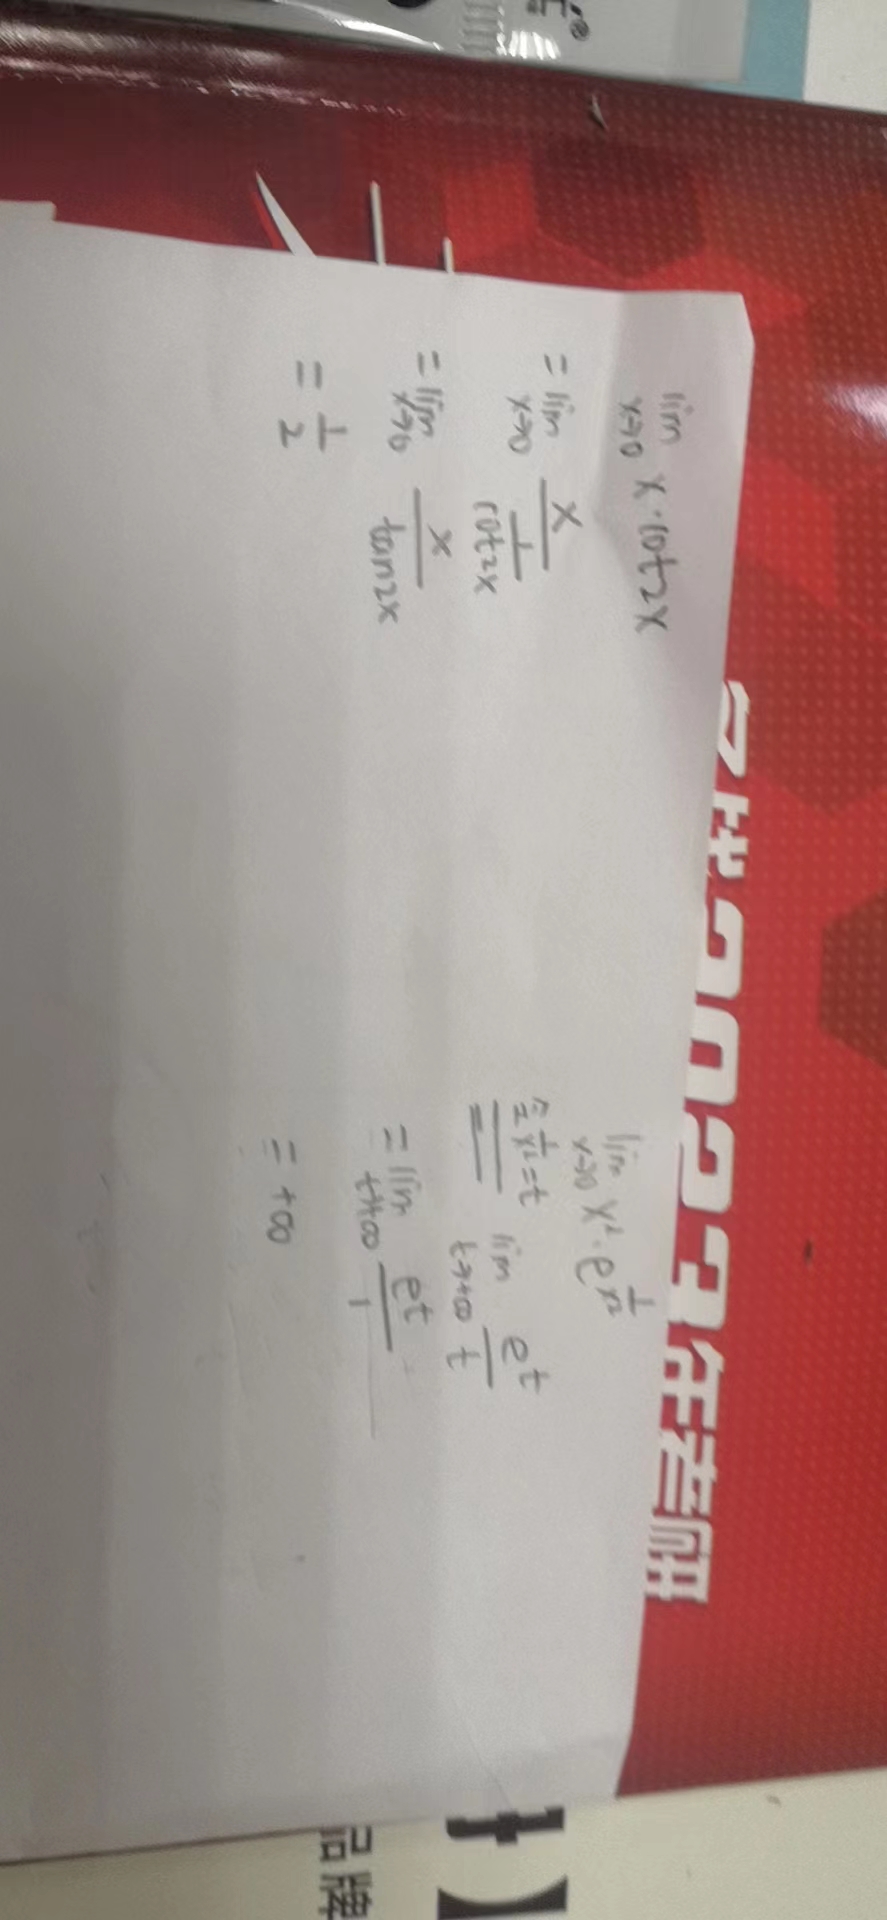 lim x→0 x·cot2x
= lim x→0 x / (1/cot2x)
= lim x→0 x / tan2x
= 1/2
lim x→0 x²·e^(1/x²)
令1/x²=t
== lim t→+∞ e^t / t
= lim t→+∞ e^t / 1
= +∞
2023年考研
品牌